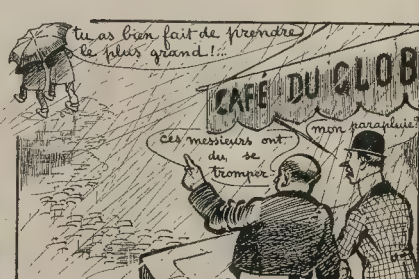 tu as bien fait de prendre
le plus grand !...
CAFÉ DU GLOB
mon parapluie ?
ces messieurs ont
du se
tromper.